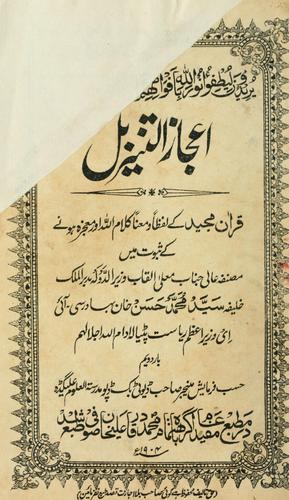 يريدون ليطفئوا نور الله بافواههم
اعجاز التنزیل
قرآن مجید کے لفظاً و معناً کلام اللہ اور معجزہ ہونے
کے ثبوت میں
مصنفہ عالی جناب معلی القاب وزیر الدولہ مدبر الملک
خلیفہ سید محمد حسن خان بہادر سی۔ آئی
ای وزیر اعظم ریاست پٹیالا دام اللہ اجلالہم
بار دویم
حسب فرمایش منیجر صاحب ڈیوٹی بک ڈپو مدرسۃ العلوم علیگڑہ
در مطبع مفید عام آگرہ باہتمام محمد قادر علیخان صوفی طبع شد
۱۹۰۴ء